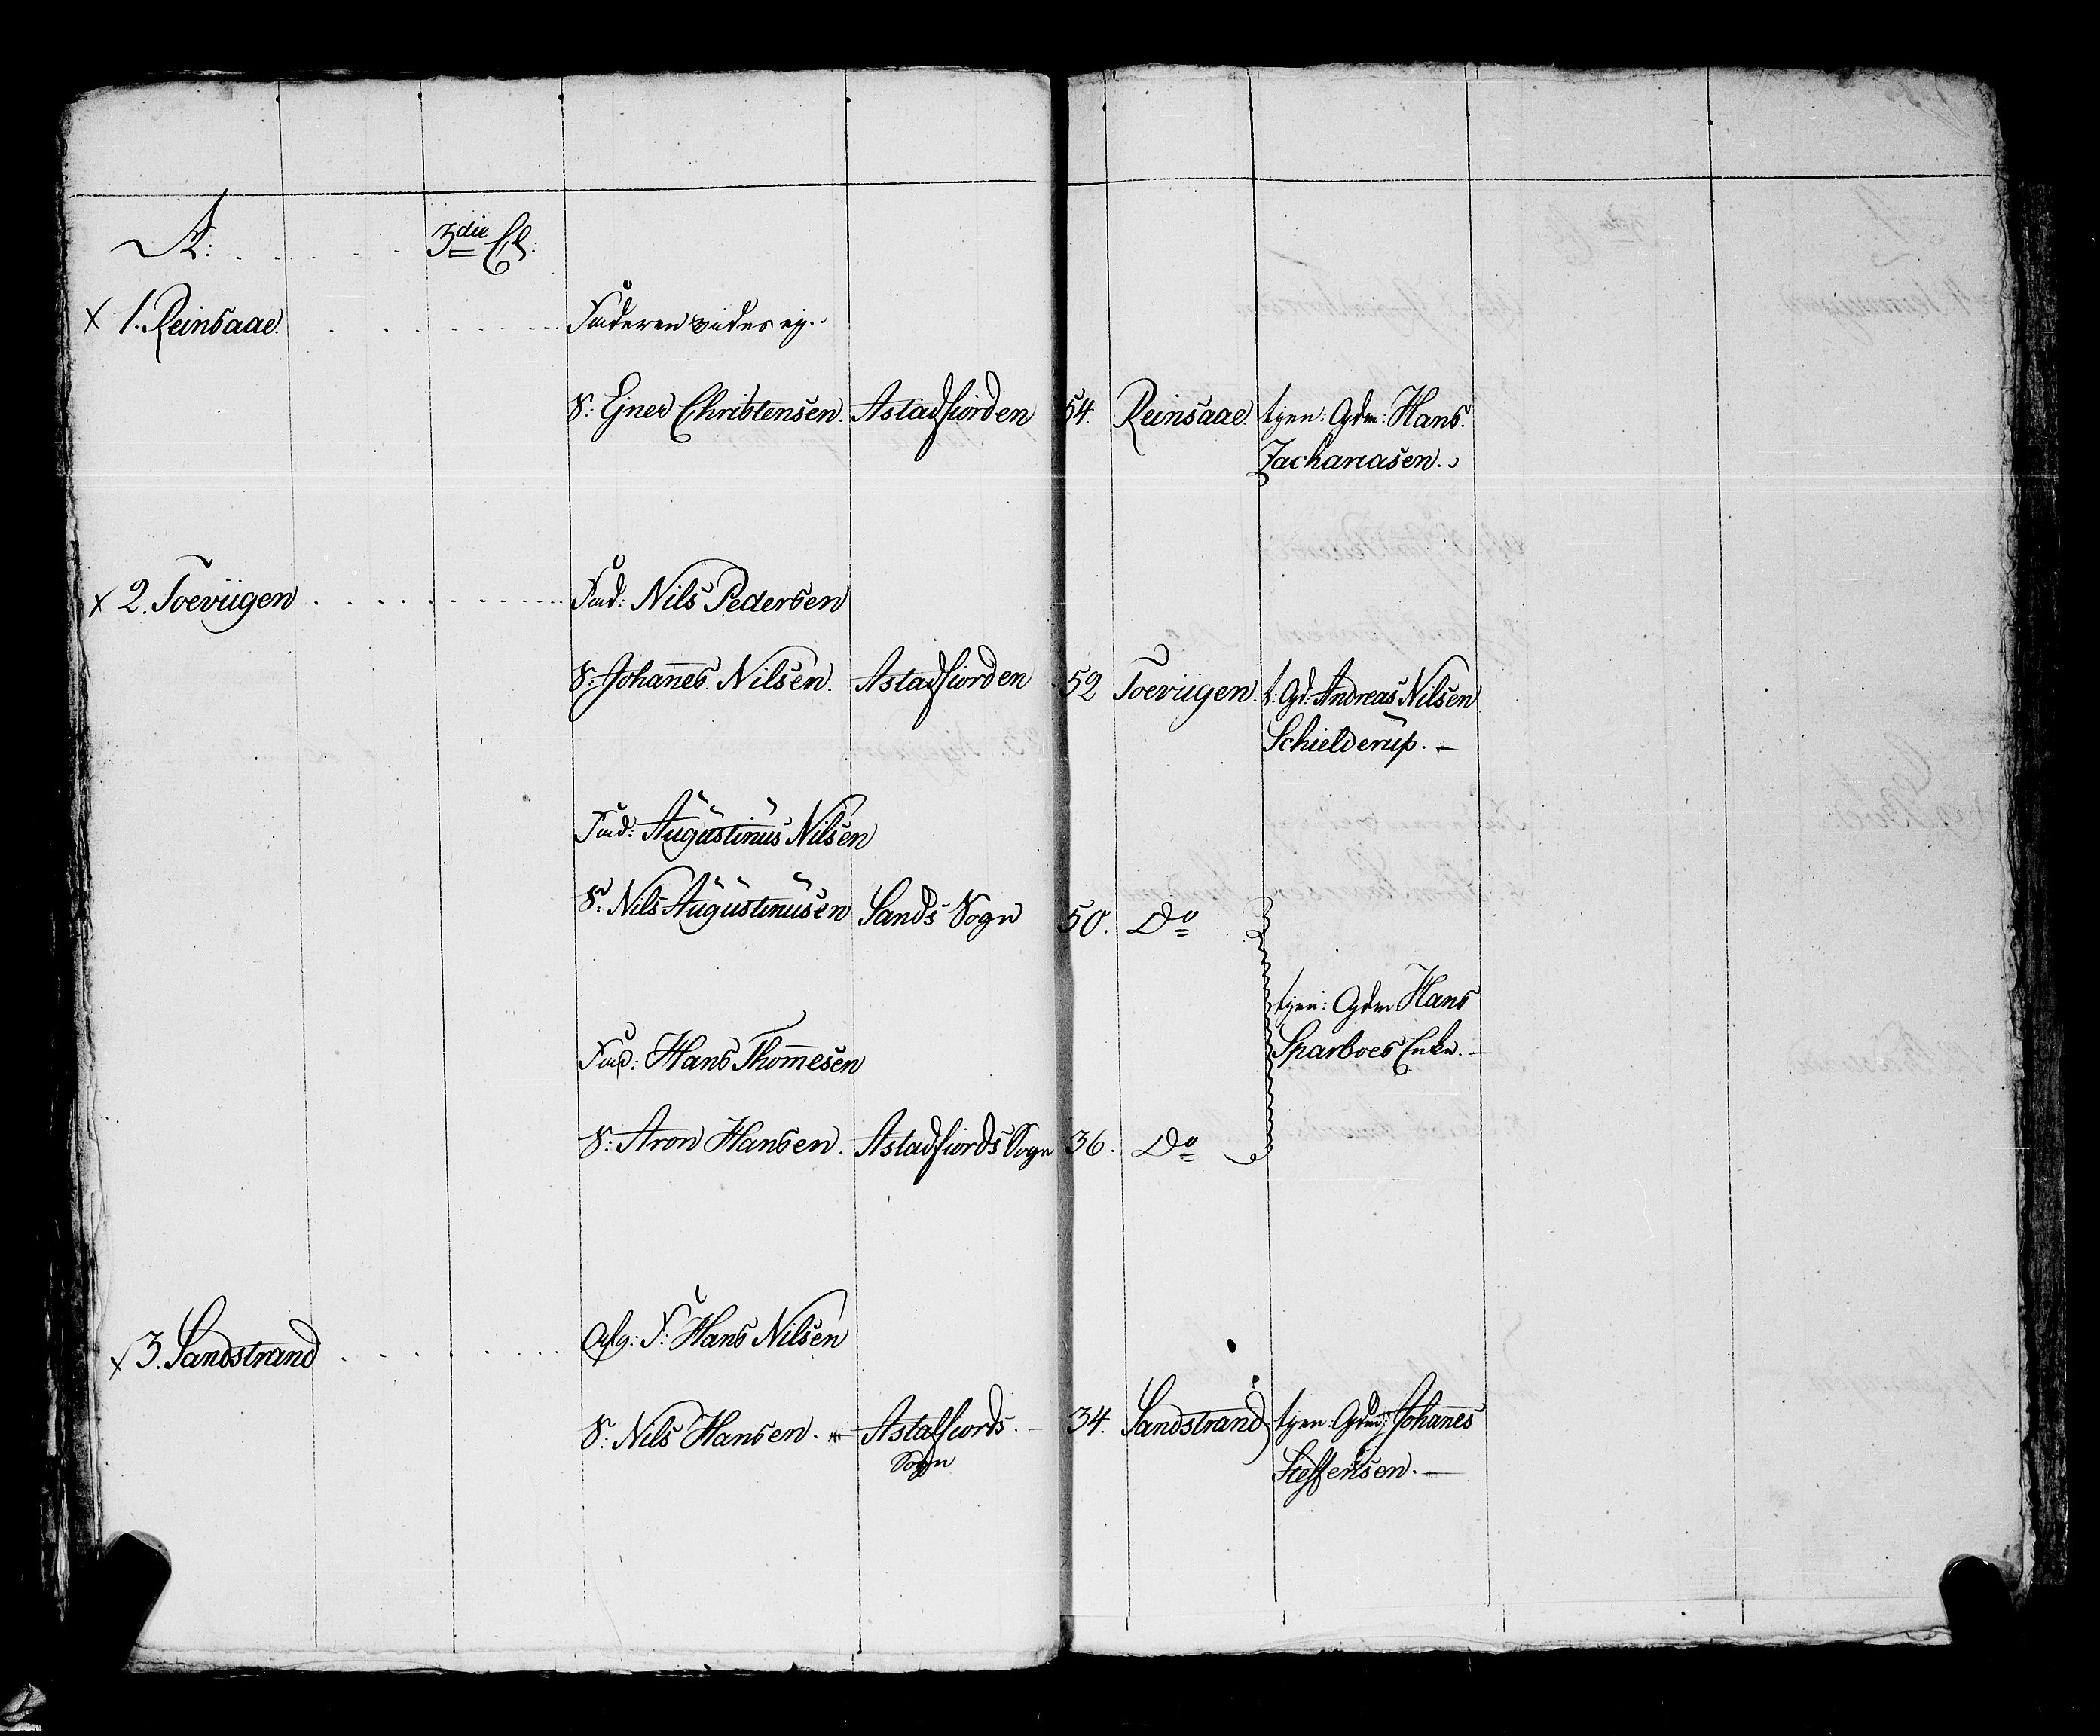 A: 3die Cl:
x 1. Reinsaae. Faderen vides ej.
S: Ejner Christensen. Astadfiorden 54. Reinsaae. tjen: Gdm: Hans
Zachariasen.
x 2. Toeviigen Fad: Nils Pedersen
S: Johan̄es Nilsen. Astadfiorden 52 Toeviigen t: Gd: Andreas Nilsen
Schielderup. –
Fad: Augustinus Nilsen
S: Nils Augustinusen Sands Sogn 50. Do
tjen: Gdm Hans
Sparboes Enke. –
Fad: Hans Thom̄esen
S: Aron Hansen. Astadfiords Sogn 36. Do
x 3. Sandstrand Afg: F: Hans Nilsen
S: Nils Hansen. – Astafiords. – 34. Sandstrand tjen: Gdm: Johan̄es
Sogn Steffensen. –